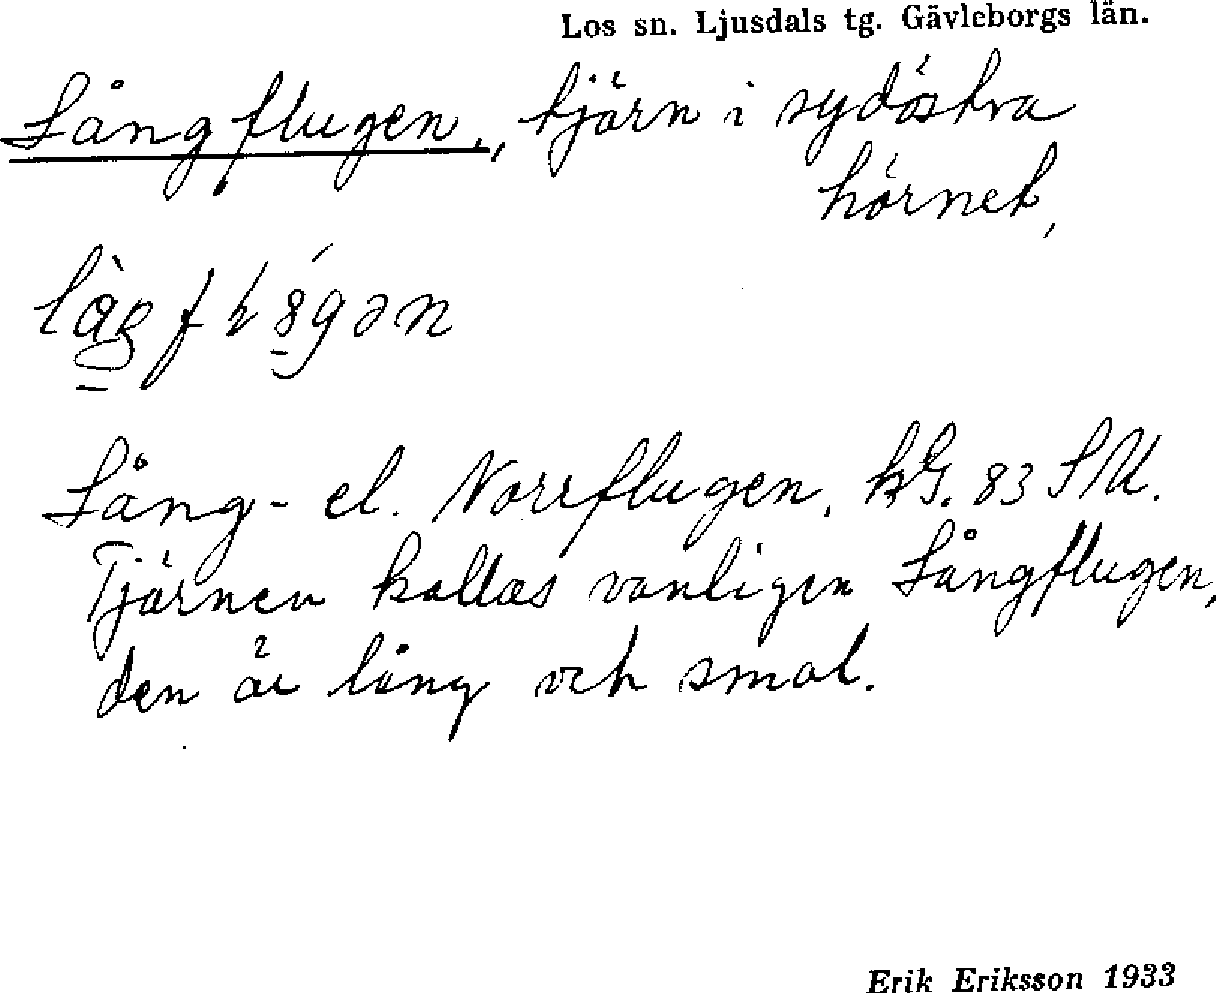 Los sn. Ljusdals tg. Gävleborgs län.
Långflugen, tjärn i sydöstra
hörnet,
Lång- el. Norrflugen, kG. 83 SU.
Tjärnen kallas vanligen Långflugen,
den är lång och smal.
Erik Eriksson 1933